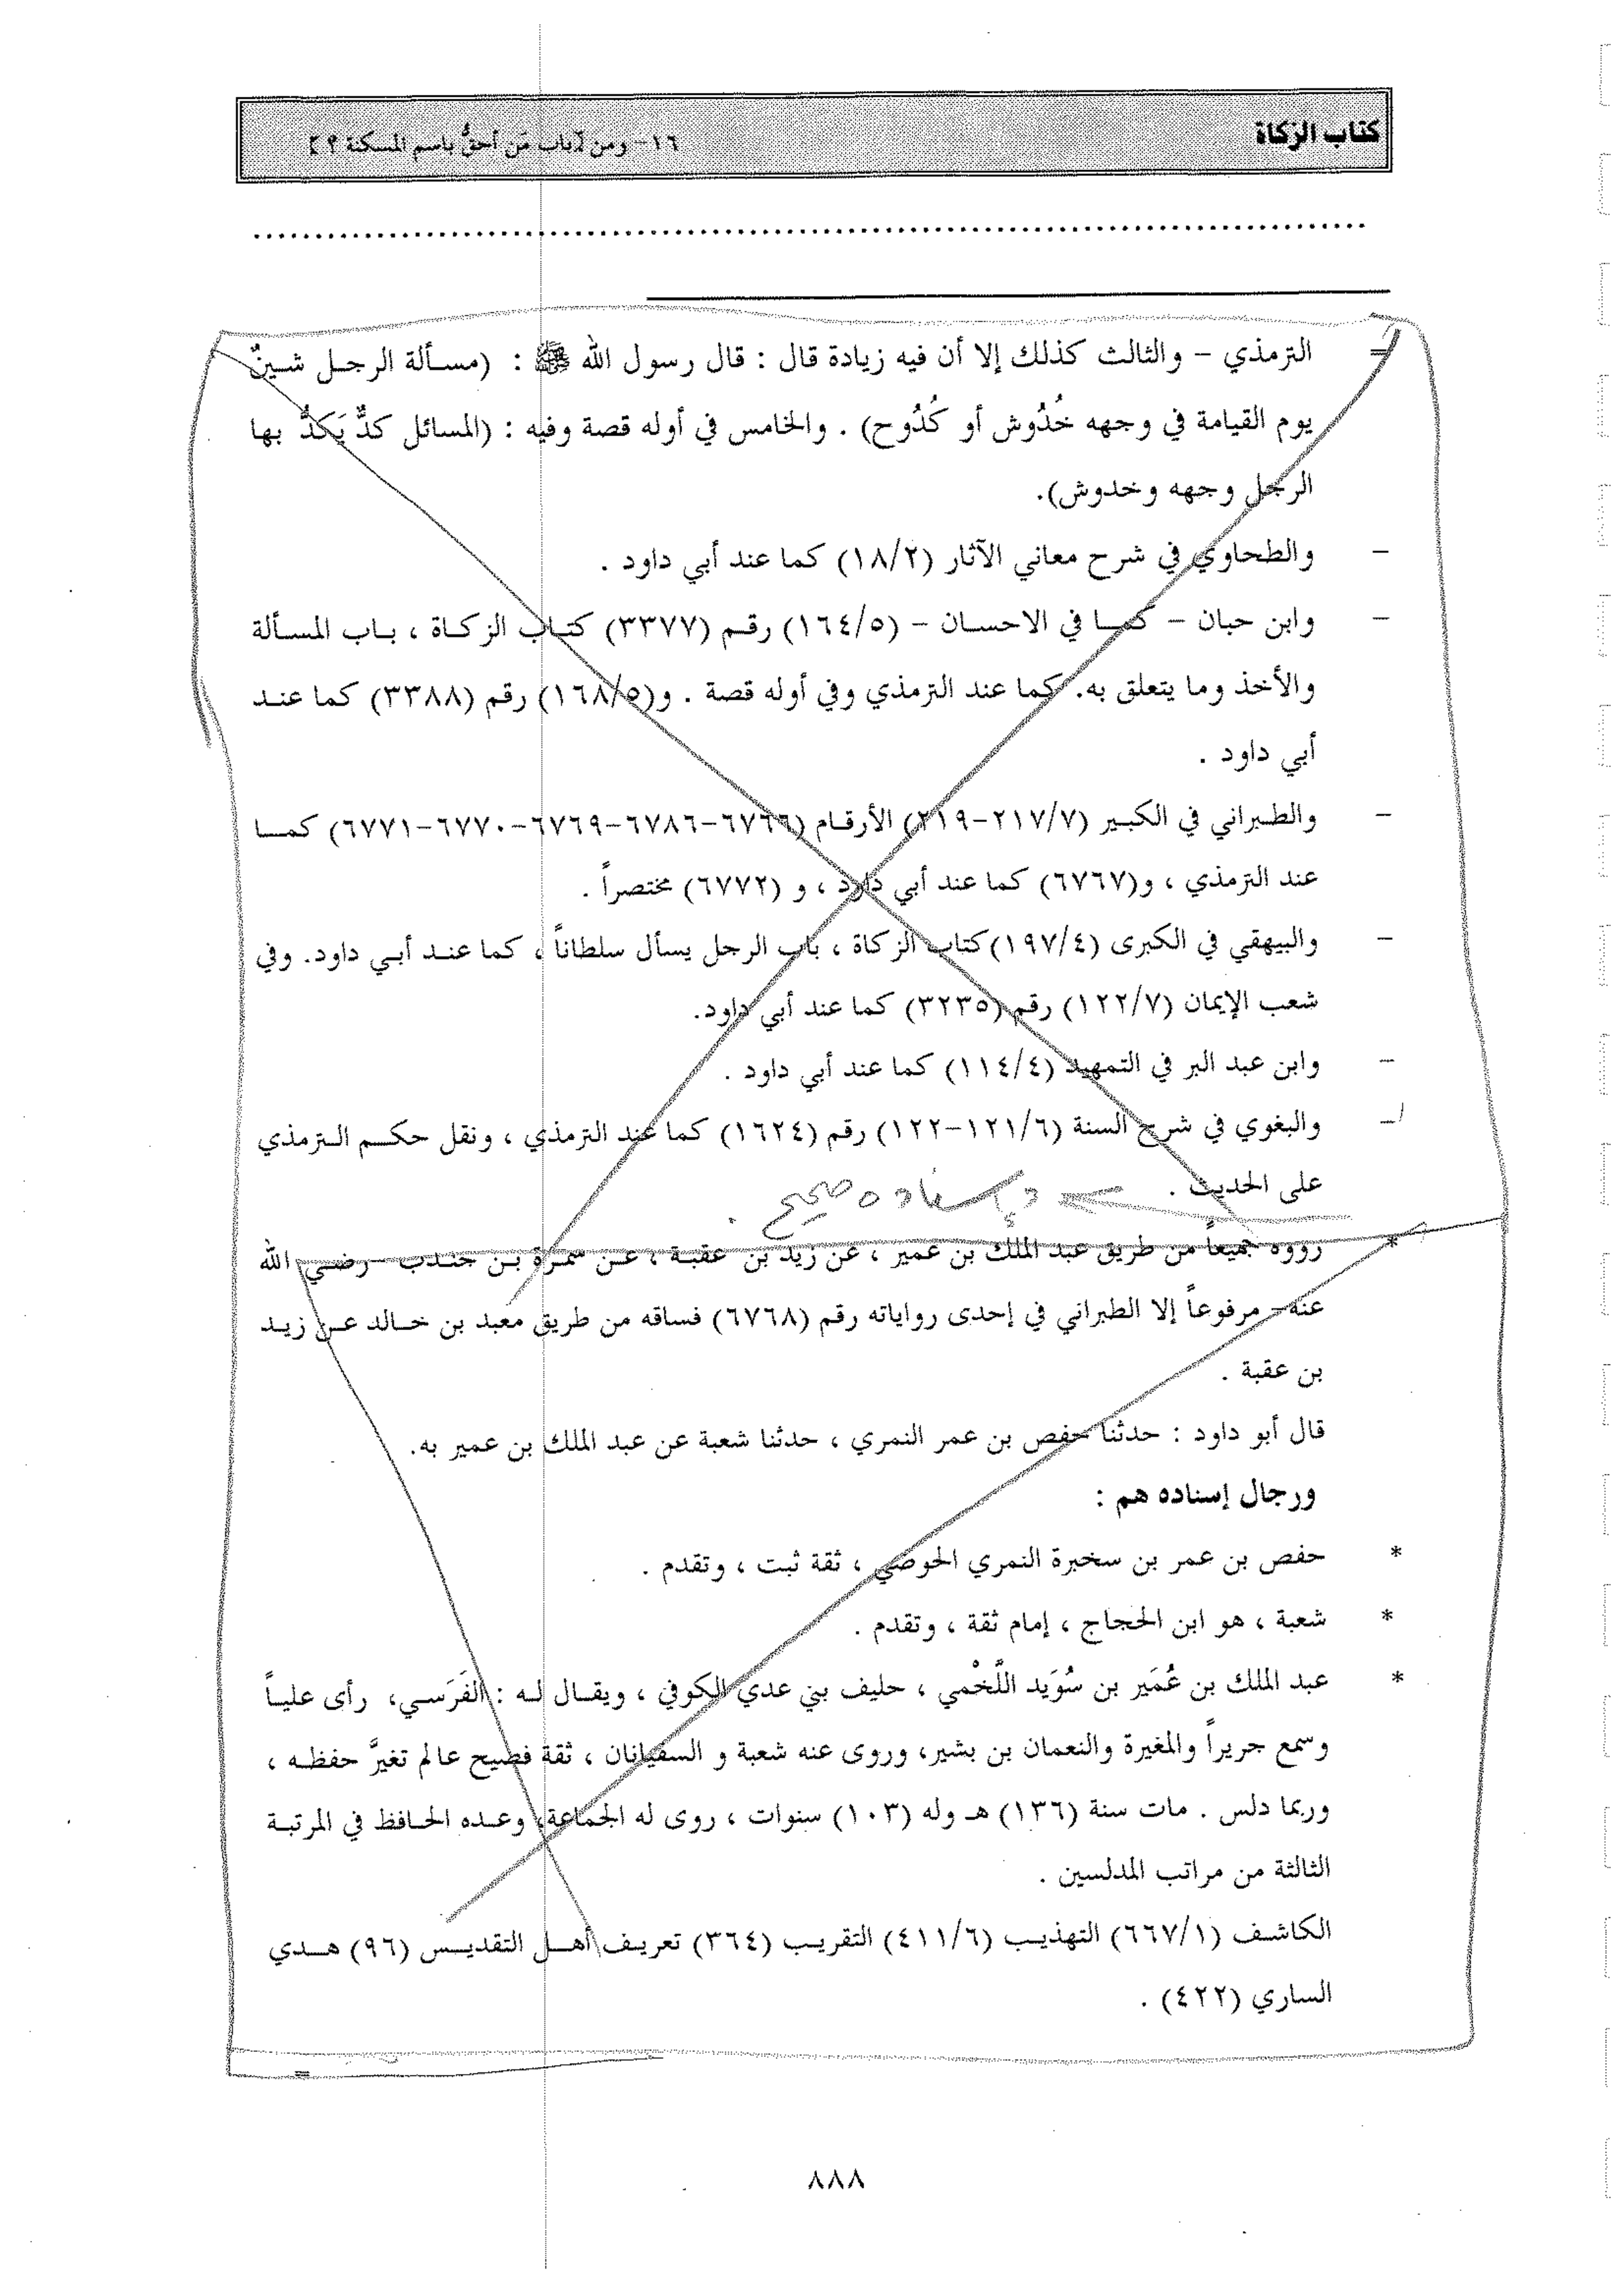 كتاب الزكاة
١٦- ومن [باب مَن أحقُّ باسم المسكنة ؟]
= الترمذي – والثالث كذلك إلا أن فيه زيادة قال : قال رسول الله ﷺ : (مسألة الرجل شينٌ
يوم القيامة في وجهه خُدُوش أو كُدُوح) . والخامس في أوله قصة وفيه : (المسائل كدٌّ يَكدُّ بها
الرجل وجهه وخدوش).
– والطحاوي في شرح معاني الآثار (١٨/٢) كما عند أبي داود .
– وابن حبان – كما في الاحسان – (١٦٤/٥) رقم (٣٣٧٧) كتاب الزكاة ، باب المسألة
والأخذ وما يتعلق به. كما عند الترمذي وفي أوله قصة . و(١٦٨/٥) رقم (٣٣٨٨) كما عند
أبي داود .
– والطبراني في الكبير (٢١٧/٧-٢١٩) الأرقام (٦٧٦٦-٦٧٨٦-٦٧٦٩-٦٧٧٠-٦٧٧١) كما
عند الترمذي ، و(٦٧٦٧) كما عند أبي داود ، و (٦٧٧٢) مختصراً .
– والبيهقي في الكبرى (١٩٧/٤) كتاب الزكاة ، باب الرجل يسأل سلطاناً ، كما عند أبي داود. وفي
شعب الإيمان (١٢٢/٧) رقم (٣٢٣٥) كما عند أبي داود.
– وابن عبد البر في التمهيد (١١٤/٤) كما عند أبي داود .
– والبغوي في شرح السنة (١٢١/٦-١٢٢) رقم (١٦٢٤) كما عند الترمذي ، ونقل حكم الترمذي
على الحديث . وإسناده صحيح .
* رووه جميعاً من طريق عبد الملك بن عمير ، عن زيد بن عقبة ، عن سمرة بن جندب -رضي الله
عنه- مرفوعاً إلا الطبراني في إحدى رواياته رقم (٦٧٦٨) فساقه من طريق معبد بن خالد عن زيد
بن عقبة .
قال أبو داود : حدثنا حفص بن عمر النمري ، حدثنا شعبة عن عبد الملك بن عمير به.
ورجال إسناده هم :
* حفص بن عمر بن سخبرة النمري الحوضي ، ثقة ثبت ، وتقدم .
* شعبة ، هو ابن الحجاج ، إمام ثقة ، وتقدم .
* عبد الملك بن عُمَير بن سُوَيد اللَّخْمي ، حليف بني عدي الكوفي ، ويقال له : الفَرَسي، رأى علياً
وسمع جريراً والمغيرة والنعمان بن بشير، وروى عنه شعبة و السفيانان ، ثقة فصيح عالم تغيرَّ حفظه ،
وربما دلس . مات سنة (١٣٦) هـ وله (١٠٣) سنوات ، روى له الجماعة، وعده الحافظ في المرتبة
الثالثة من مراتب المدلسين .
الكاشف (٦٦٧/١) التهذيب (٤١١/٦) التقريب (٣٦٤) تعريف أهل التقديس (٩٦) هدي
الساري (٤٢٢) .
=
٨٨٨